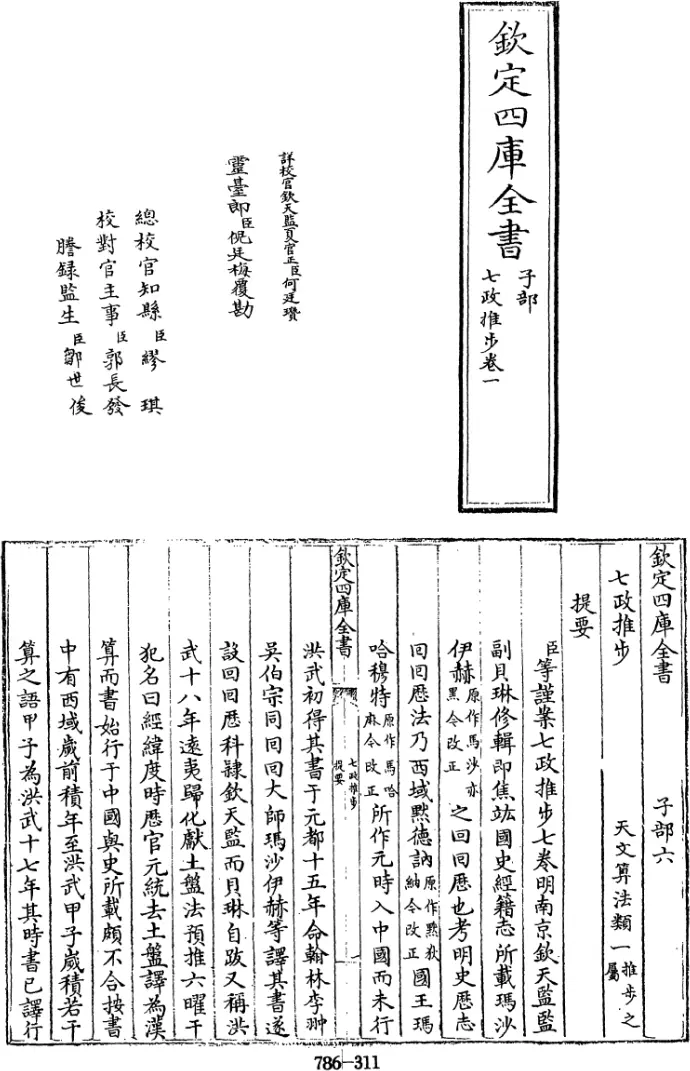 欽定四庫全書
子部
七政推步卷一
詳校官欽天監夏官正臣何廷瓚
靈臺郎臣倪廷梅覆勘
總校官知縣臣繆琪
校對官主事臣郭長發
謄錄監生臣鄒世俊
欽定四庫全書
子部六
七政推步
天文算法類一推步之屬
提要
臣等謹案七政推步七卷明南京欽天監監
副貝琳修輯即焦竑國史經籍志所載瑪沙
伊赫原作馬沙亦黑今改正之回回厯也考明史厯志
回回厯法乃西域黙德訥原作黙狄納今改正國王瑪
哈穆特原作馬哈麻今改正所作元時入中國而未行
欽定四庫全書
七政推步
提要
一
洪武初得其書于元都十五年命翰林李翀
吳伯宗同回回大師瑪沙伊赫等譯其書遂
設回回厯科隸欽天監而貝琳自跋又稱洪
武十八年遠夷歸化獻土盤法預推六曜干
犯名曰經緯度時厯官元統去土盤譯為漢
算而書始行于中國與史所載頗不合按書
中有西域歲前積年至洪武甲子歲積若干
算之語甲子為洪武十七年其時書已譯行
786-311